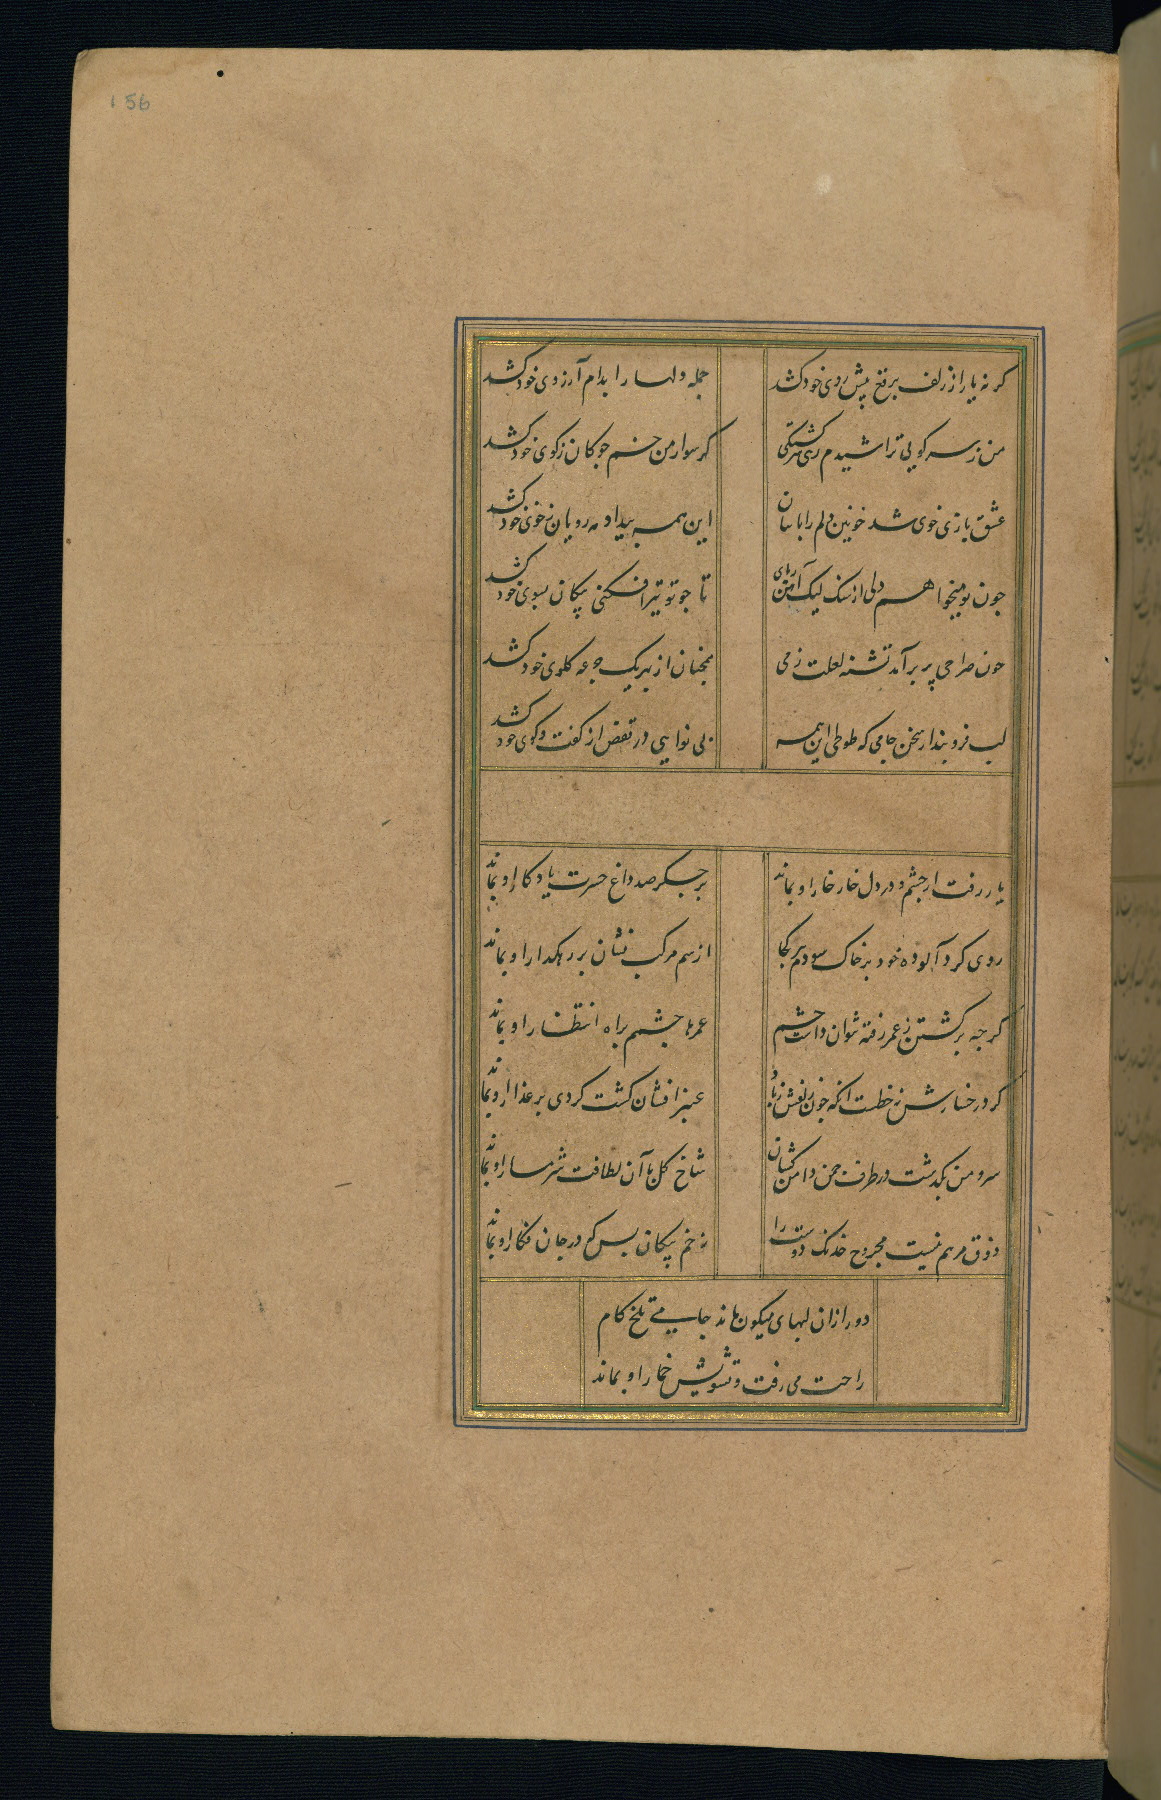 156
گر نه یار از زلف برقع پیش روی خود کشد
جمله دلها را بدام آرزوی خود کشد
من ز سر کویی تراشیدم ز
گر سوار من خم چوکان ز کوی خود کشد
عشق بازی خوی شد خونین دلم را با بتان
این همه بیداد مه رویان ز خوی خود کشد
چون تو میخواهم دلی از سنک لیک آهن ربای
تا چو تو تیر افکنی پیکان بسوی خود کشد
چون صراحی پر برآمد تشنه لعلت ز می
همچنان از بهر یک جرعه کلوی خود کشد
لب فرو بند از سخن جامی که طوطی این همه
بی نوایی در قفص از کفت و کوی خود کشد
یار رفت از چشم و در دل خار خار او بماند
بر جکر صد داغ حسرت یادکار او بماند
روی کرد آلوده خود بر خاک سودم هر کجا
از سم مرکب نشان بر رهکدار او بماند
کرچه برکشتن ز عمر رفته نتوان داشت چشم
عمرها چشمم براه انتظار او بماند
کرد رخسارش نه خطست آنکه چون زلفش ز باد
عنبر افشان کشت کردی بر عذار او بماند
سرو من بکدشت در طرف چمن دامن کشان
شاخ کل با آن لطافت شرمسار او بماند
ذوق مرهم نیست مجروح خدنک دوست را
زخم پیکان بس که در جان فکار او بماند
دور از ان لبهای میکون ماند جامی تلخ کام
راحت می رفت و تشویش خمار او بماند